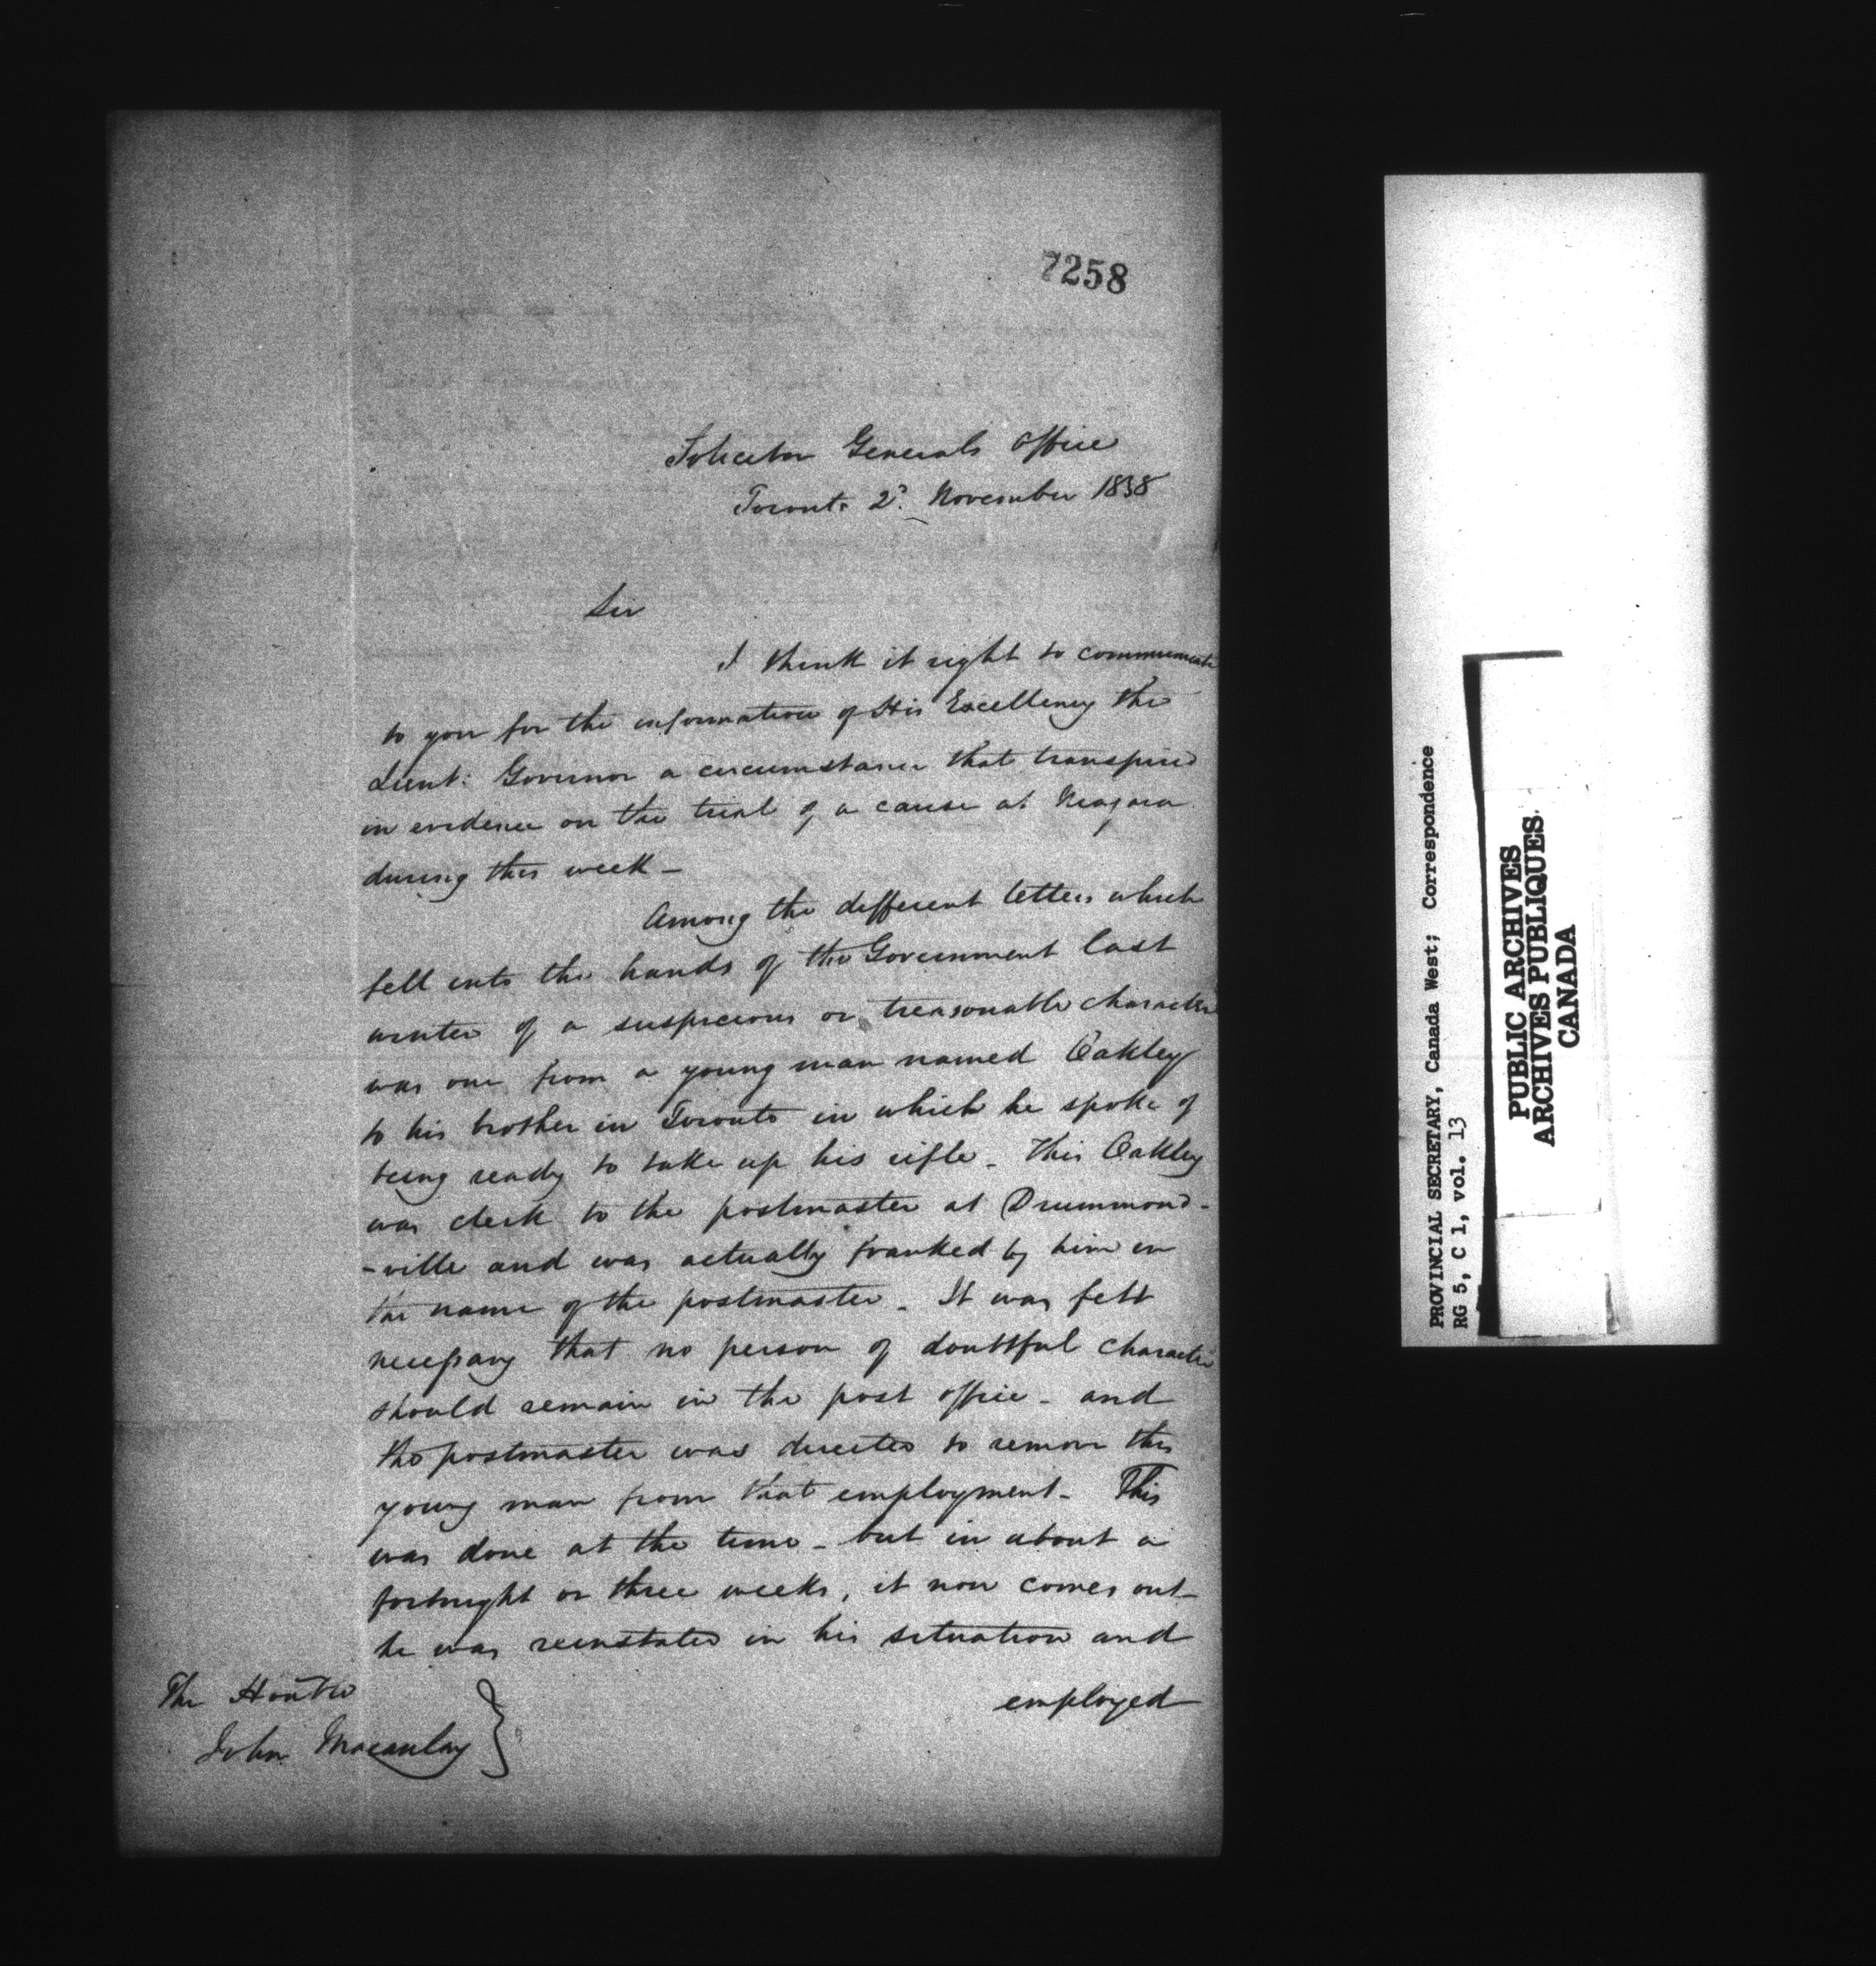 7258
Solicitor Generals Office
Toronto 2d. November 1838
Sir
I think it right to communicate
to you for the information of His Excellency the
Lieut: Governor a circumstance that transpired
in evidence on the trial of a cause at Niagara
during this week -
Among the different letters which
fell into the hands of the Government last
winter of a suspicious or treasonable character
was one from a young man named Oakley
to his brother in Toronto in which he spoke of
being ready to take up his rifle - This Oakley
was clerk to the postmaster at Drummond-
-ville and was actually franked by him in
the name of the postmaster - It was felt
necessary that no person of doubtful character
should remain in the post office - and
the postmaster was directed to remove this
young man from that employment - This
was done at the time - but in about a
fortnight or three weeks, it now comes out -
he was reinstated in his situation and
employed
The Honble
John Macaulay
PROVINCIAL SECRETARY, Canada West; Correspondence
RG 5, C 1, vol. 13
PUBLIC ARCHIVES
ARCHIVES PUBLIQUES
CANADA